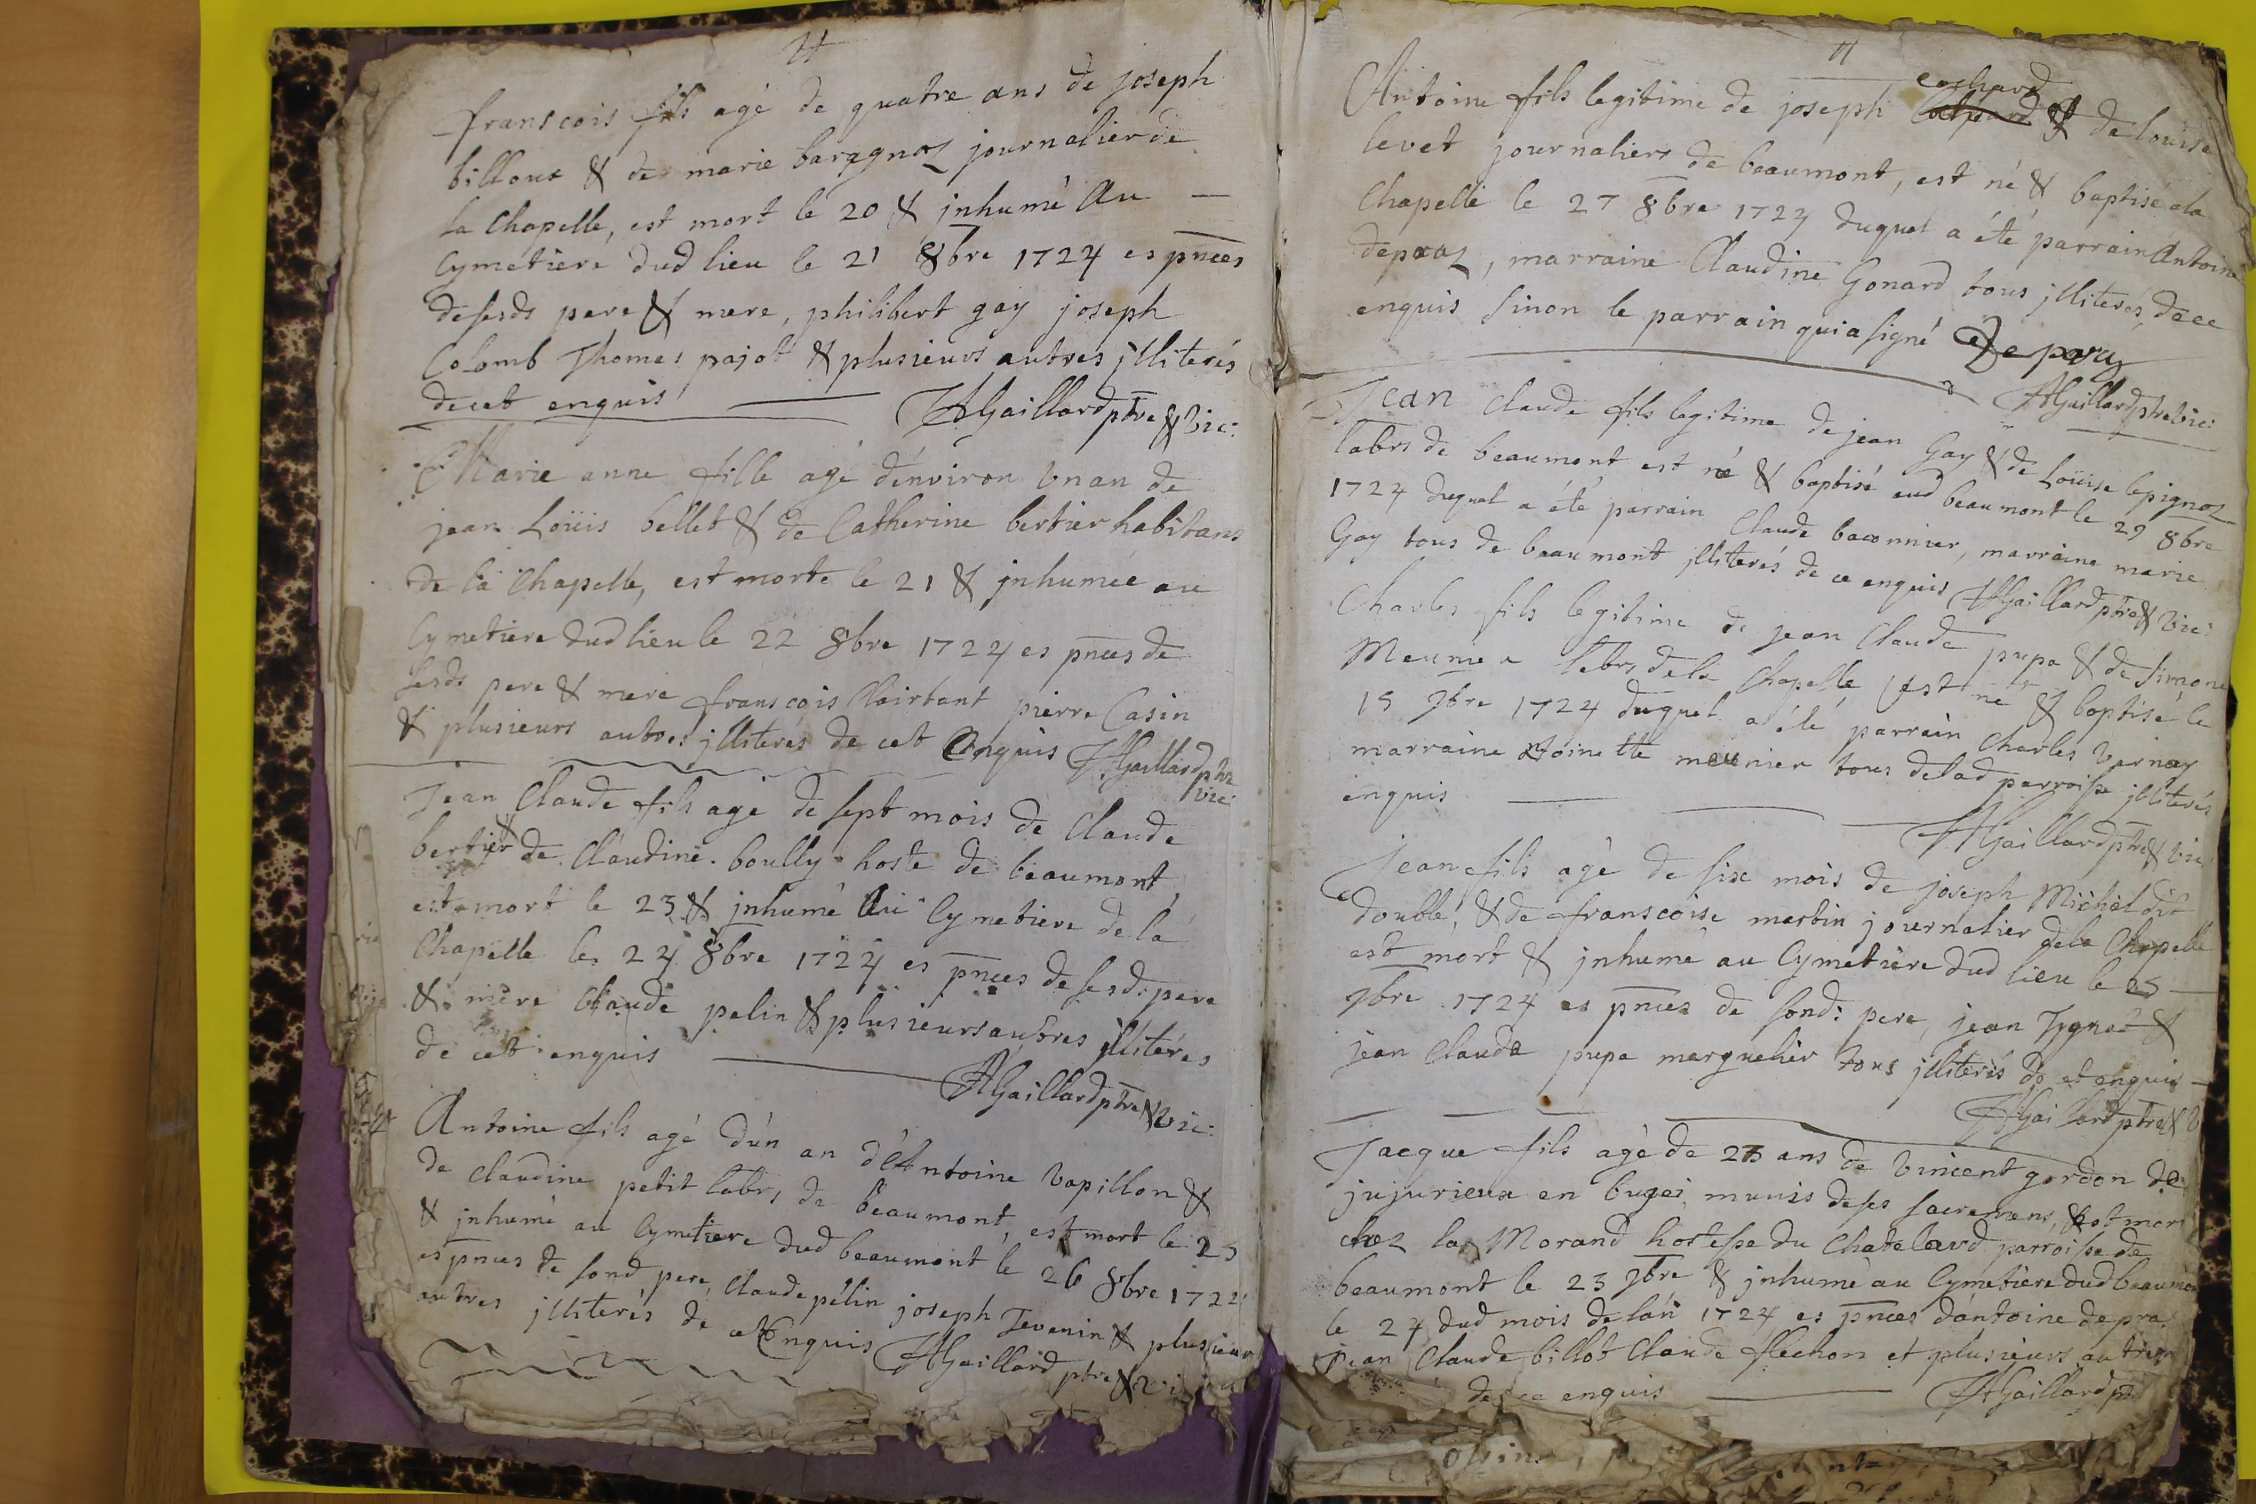 franscois fils agé de quatre ans de joseph
billoux & de marie baragnoz journalier de
la Chapelle, est mort le 20 & jnhumé Au —
Cymetiere dud lieu le 21 8bre 1724 es pnces
de sesds pere & mere, philibert gay joseph
Colomb Thomes pajot & plusieurs autres jlliterés
de cet enquis HGaillard ptre & vic:
Marie anne fille agé d'environ vn an de
jean Loüis bellet & de Catherine bertier habitans
de la Chapelle, est morte le 21 & jnhumée au
Cymetiere dud lieu le 22 8bre 1724 es pnces de
sesds pere & mere franscois Clairtant pierre Casin
& plusieurs autres jlliterés de cet Enquis HGaillard ptre
vic:
Jean Claude fils agé de sept mois de Claude
bertier & de Claudine boully hoste de beaumont
est mort le 23 & jnhumé Au Cymetiere de la
Chapelle le 24 8bre 1724 es pnces de sesd: pere
& mere Claude pelin & plusieurs autres jlliterés
de cet enquis HGaillard ptre & vic:
Antoine fils agé d'un an d'Antoine vapillon &
de Claudine petit labrs de beaumont, est mort le 25
& jnhumé au Cymetiere dud beaumont le 26 8bre 1724
es pnces de sond pere, Claude pélin joseph Tevenin & plusieurs
autres jlliterés de cet Enquis HGaillard ptre & vi
Antoine fils legitime de joseph cochard & de louise
levet journaliers de beaumont, est né & baptisé a la
Chapelle le 27 8bre 1724 duquel a été parrain Antoine
depraz, marraine Claudine Gonard tous jlliterés, de ce
enquis sinon le parrain qui a signé Depraz
HGaillard ptre vic:
Jean Claude fils legitime de jean Gay & de Loüise lepignoz
labrs de beaumont est né & baptisé aud beaumont le 29 8bre
1724 duquel a été parrain Claude baconnier, marraine marie
Gay tous de beaumont jlliterés de ce enquis HGaillard ptre & vic:
Charles fils legitime de jean Claude pupa & de simone
Meunier labrs de la Chapelle est né & baptisé le
15 9bre 1724 duquel a été parrain Charles vernay
marraine toinette meunier tous de lad parroisse jlliterés
enquis
HGaillard ptre & vic:
Jean fils agé de six mois de joseph Michel dit
doublé, & de franscoise martin journalier de la Chapelle
est mort & jnhumé au Cymetiere dud lieu le 25 —
9bre 1724 es pnces de sond: pere, jean &
jean Claude pupa marguelier tous jlliterés de ce enquis —
HGaillard ptre & v
Jacque fils agé de 23 ans de vincent gordon de
jujurieux en bugei, munis de ses sacremens, est mort
chez la Morand hostesse du Chatelard parroisse de
beaumont le 23 9bre & jnhumé au Cymetiere dud beaumon
le 24 dud mois de l'an 1724 es pnces d'antoine depra
Jean Claude billot Claude flechon et plusieurs autres
de ce enquis HGaillard